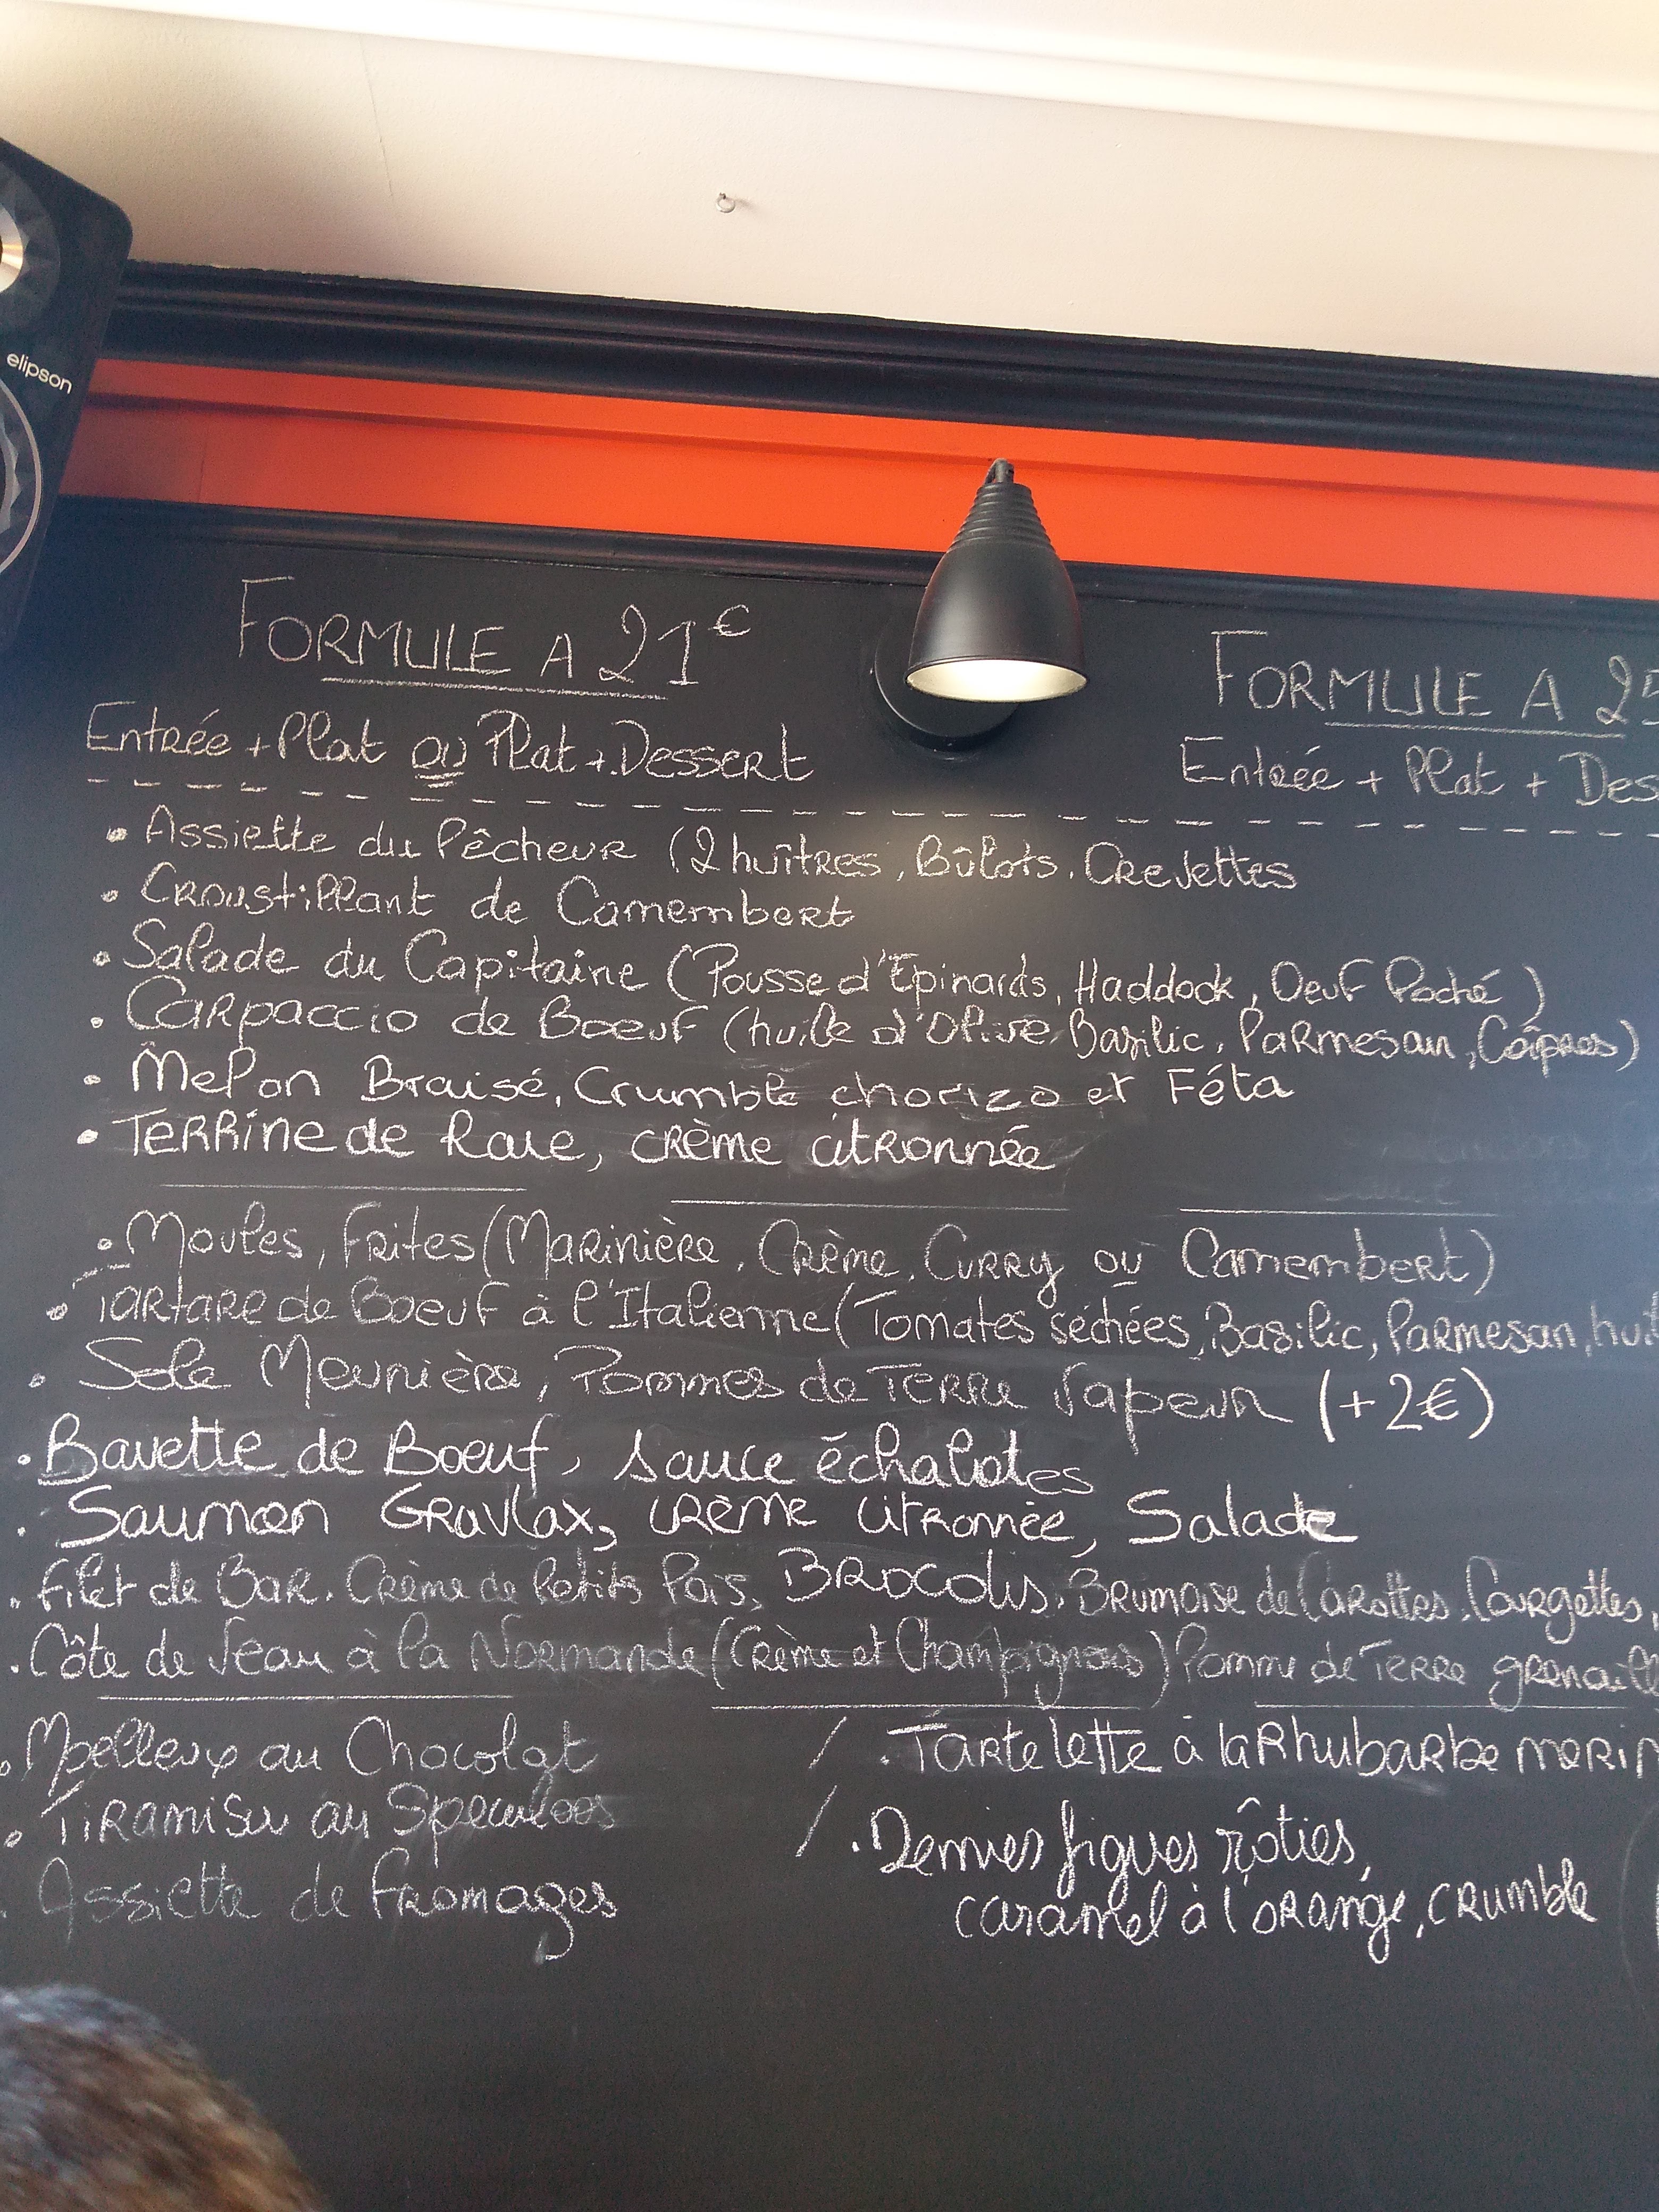 elipson
FORMULE A 21€
FORMULE A 25
Entrée + Plat ou Plat + Dessert
Entrée + Plat + Des
• Assiette du Pêcheur (2 huîtres, Bûlots, Crevettes
• Croustillant de Camembert
• Salade du Capitaine (Pousse d'Epinards, Haddock, Oeuf Poché)
• Carpaccio de Boeuf (huile d'Olive, Basilic, Parmesan, Câpres)
• Melon Braisé, Crumble chorizo et Féta
• Terrine de Raie, crème citronnée
• Moules, Frites (Marinière, Crème, Curry ou Camembert)
• Tartare de Boeuf à l'Italienne (Tomates séchées, Basilic, Parmesan, huil
• Sole Meunière, Pommes de Terre Vapeur (+2€)
• Bavette de Boeuf, sauce échalotes
• Saumon Gravlax, crème citronnée, Salade
• Filet de Bar, Crème de Petits Pois, Brocolis, Brunoise de Carottes, Courgettes,
• Côte de Veau à la Normande (Crème et Champignons) Pomme de Terre grenaill
• Moelleux au Chocolat / • Tartelette à la Rhubarbe merin
• Tiramisu au Speculoos / • Demies figues rôties,
caramel à l'orange, crumble
• Assiette de Fromages